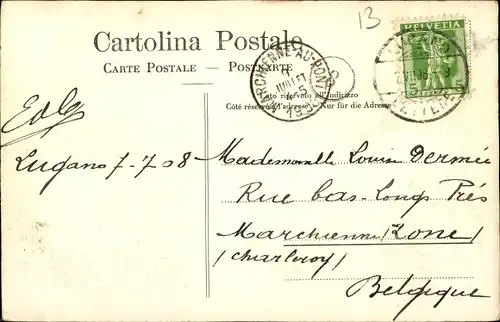 13
Cartolina Postale
CARTE POSTALE — POSTKARTE
HELVETIA
5
MARCHIENNE-AU-PONT
9
JUILLET
Lato riservato all'indirizzo
Côté réservé à l'adresse Nur für die Adresse
Lugano 7-7 08
Mademoiselle Louise Dermée
Rue bas-Longs Prés
Marchienne (Zone)
(Charleroy)
Belgique